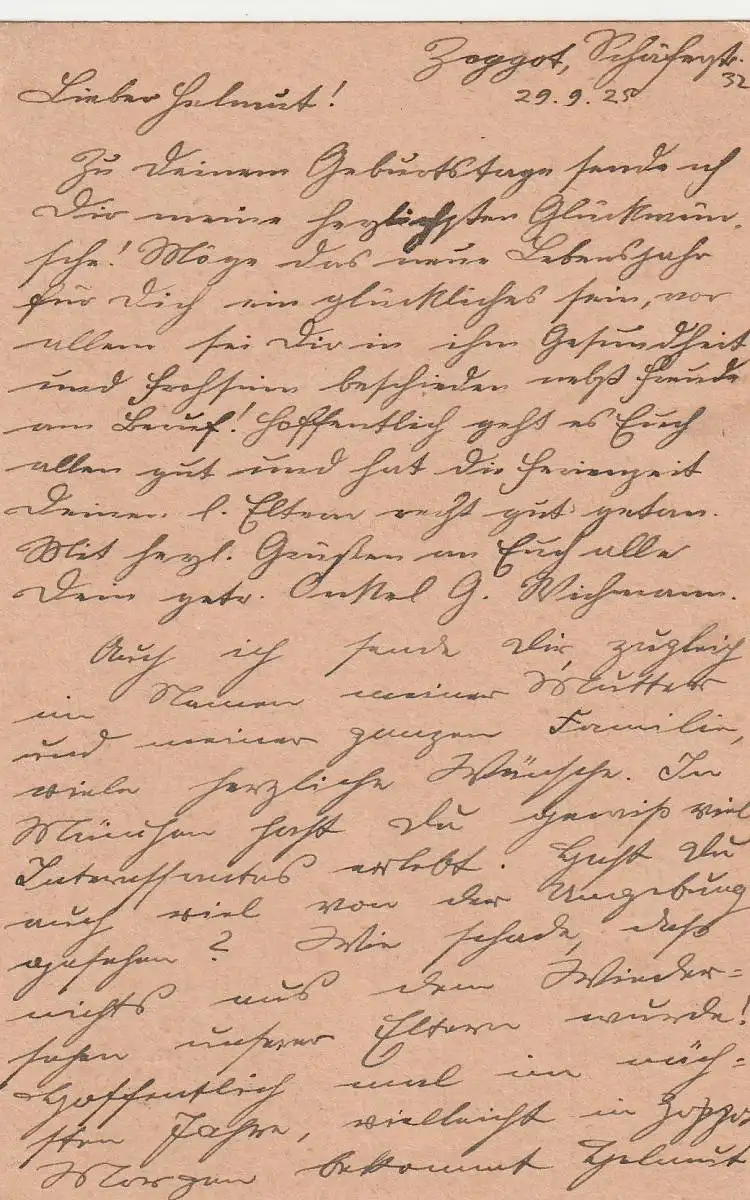 Zoppot, Schäferstr.
32
29.9.25
Lieber Helmut!
Zu Deinem Geburtstage sende ich
Dir meine herzlichsten Glückwün-
sche! Möge das neue Lebensjahr
für Dich ein glückliches sein, vor
allem sei Dir in ihm Gesundheit
und Frohsinn beschieden nebst Freude
am Beruf! Hoffentlich geht es Euch
allen gut und hat die Ferienzeit
Deinen l. Eltern recht gut getan.
Mit herzl. Grüßen an Euch alle
Dein getr. Onkel G. Wichmann.
Auch ich sende Dir, zugleich
im Namen meiner Mutter
und meiner ganzen Familie,
viele herzliche Wünsche. In
München hast Du gewiß viel
Interessantes erlebt. Hast Du
auch viel von der Umgebung
gesehen? Wie schade, daß
nichts aus dem Wieder-
sehen unserer Eltern wurde!
Hoffentlich mal im näch-
sten Jahre, vielleicht in Zoppot
Morgen bekommt Helmut